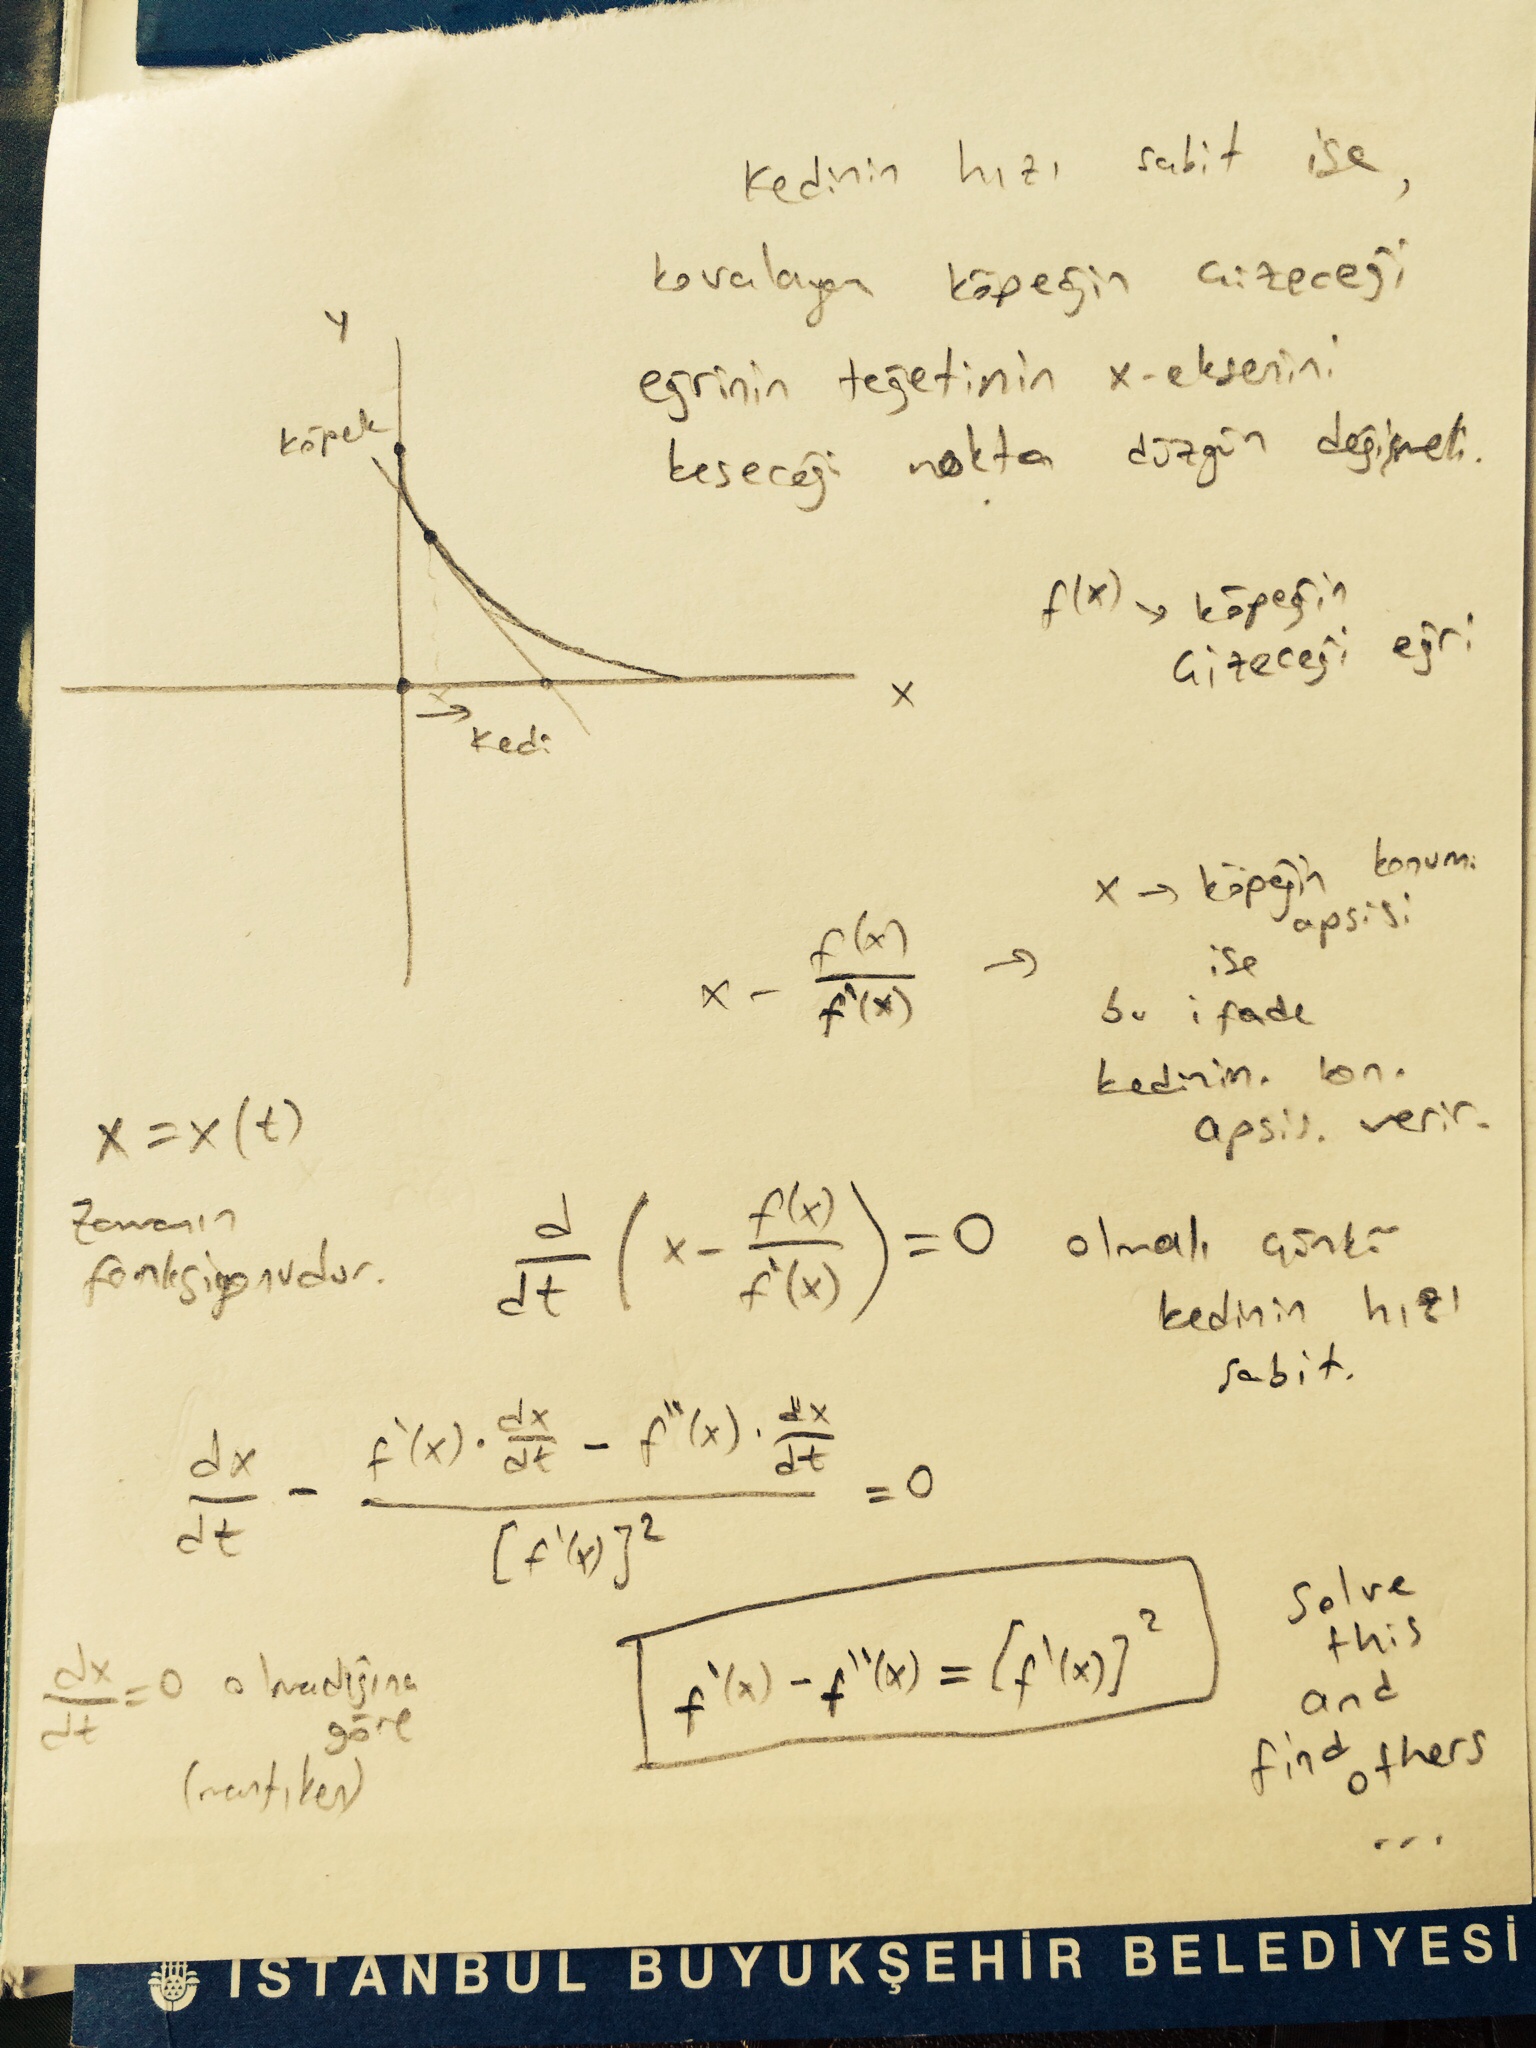 Kedinin hızı sabit ise,
kovalayan köpeğin çizeceği
eğrinin teğetinin x-eksenini
keseceği nokta düzgün değişmeli.
y
köpek
x
kedi
f(x) → köpeğin
çizeceği eğri
x → köpeğin konum.
apsisi
ise
bu ifade
kedinin. kon.
apsis. verir.
x - f(x)/f'(x) →
x = x(t)
zamanın
fonksiyonudur.
d/dt (x - f(x)/f'(x)) = 0 olmalı çünkü
kedinin hızı
sabit.
dx/dt - (f'(x) · dx/dt - f''(x) · dx/dt)/[f'(x)]² = 0
dx/dt = 0 olmadığına
göre
(mantıken)
f'(x) - f''(x) = [f'(x)]²
solve
this
and
find others
...
İSTANBUL BÜYÜKŞEHİR BELEDİYESİ